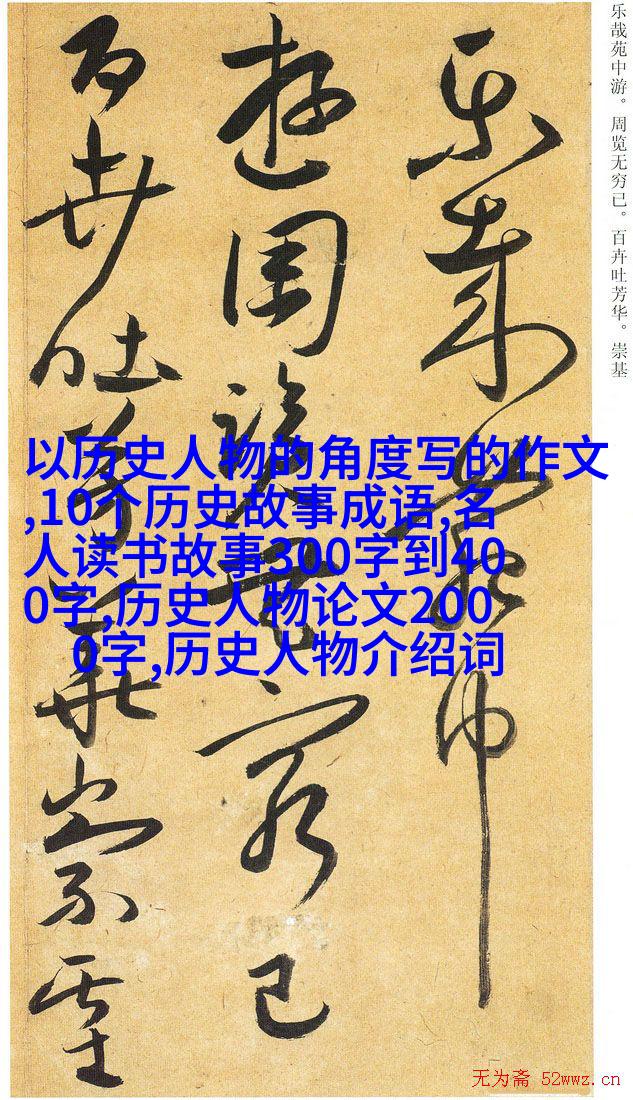 乐哉苑中游。周览无穷已。百卉吐芳华。崇基
乐哉苑中
游周览无穷已
百卉吐芳华崇基
以历史人物的角度写的作文
,10个历史故事成语,名
人读书故事300字到40
0字,历史人物论文200
0字,历史人物介绍词
无为斋 52wwz.cn